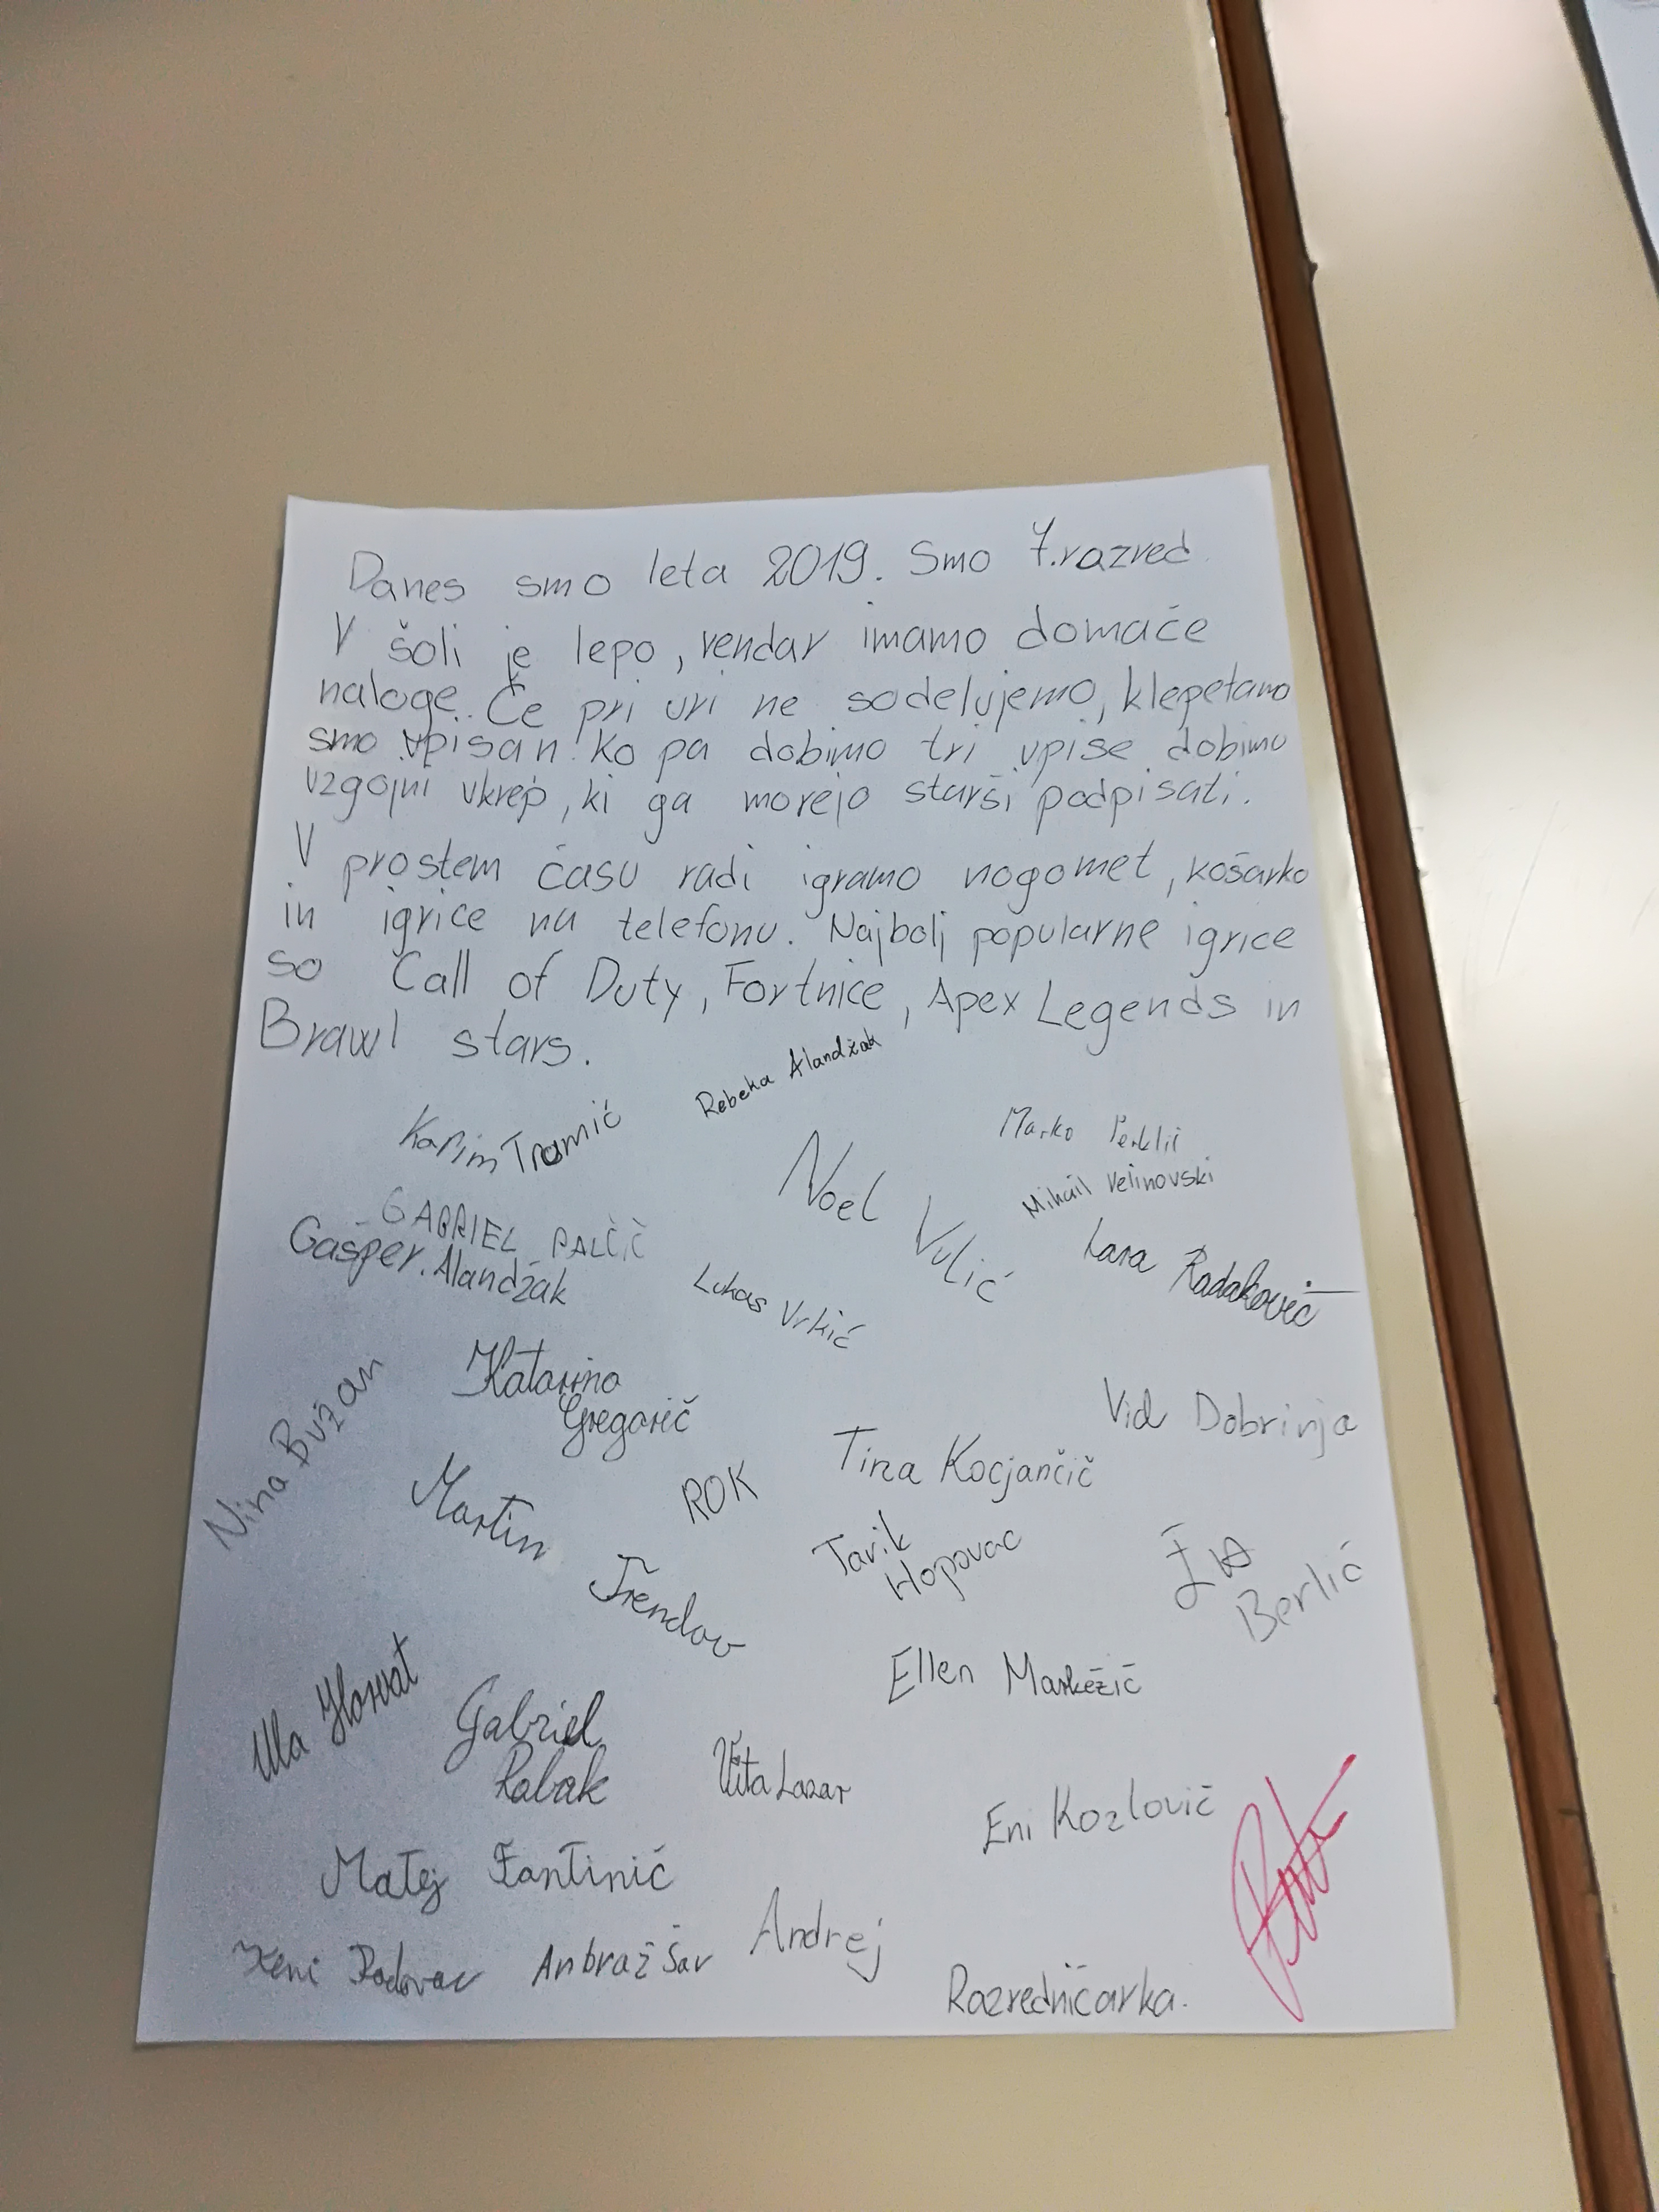 Danes smo leta 2019. Smo 7.razred.
V šoli je lepo, vendar imamo domače
naloge. Če pri uri ne sodelujemo, klepetamo
smo vpisan. Ko pa dobimo tri vpise dobimo
vzgojni ukrep, ki ga morejo starši podpisati.
V prostem času radi igramo nogomet, košarko
in igrice na telefonu. Najbolj popularne igrice
so Call of Duty, Fortnice, Apex Legends in
Brawl stars.
Rebeka Alandžak
Karim
Marko
Noel Vulić
Mihail Velinovski
GABRIEL PALČIČ
Gašper Alandžak
Lukas Vrkić
Lara Radaković
Katarina
Gregorič
Nina Bužan
Vid Dobrinja
Tina Kocjančič
Martin Trendov
ROK
Tarik
Hopovac
Berlić
Ellen Markežič
Ula Horvat
Gabriel
Rabak
Vita Lazar
Eni Kozlovič
Matej Fantinić
Andrej
Anbraž Šav
Razredničarka.